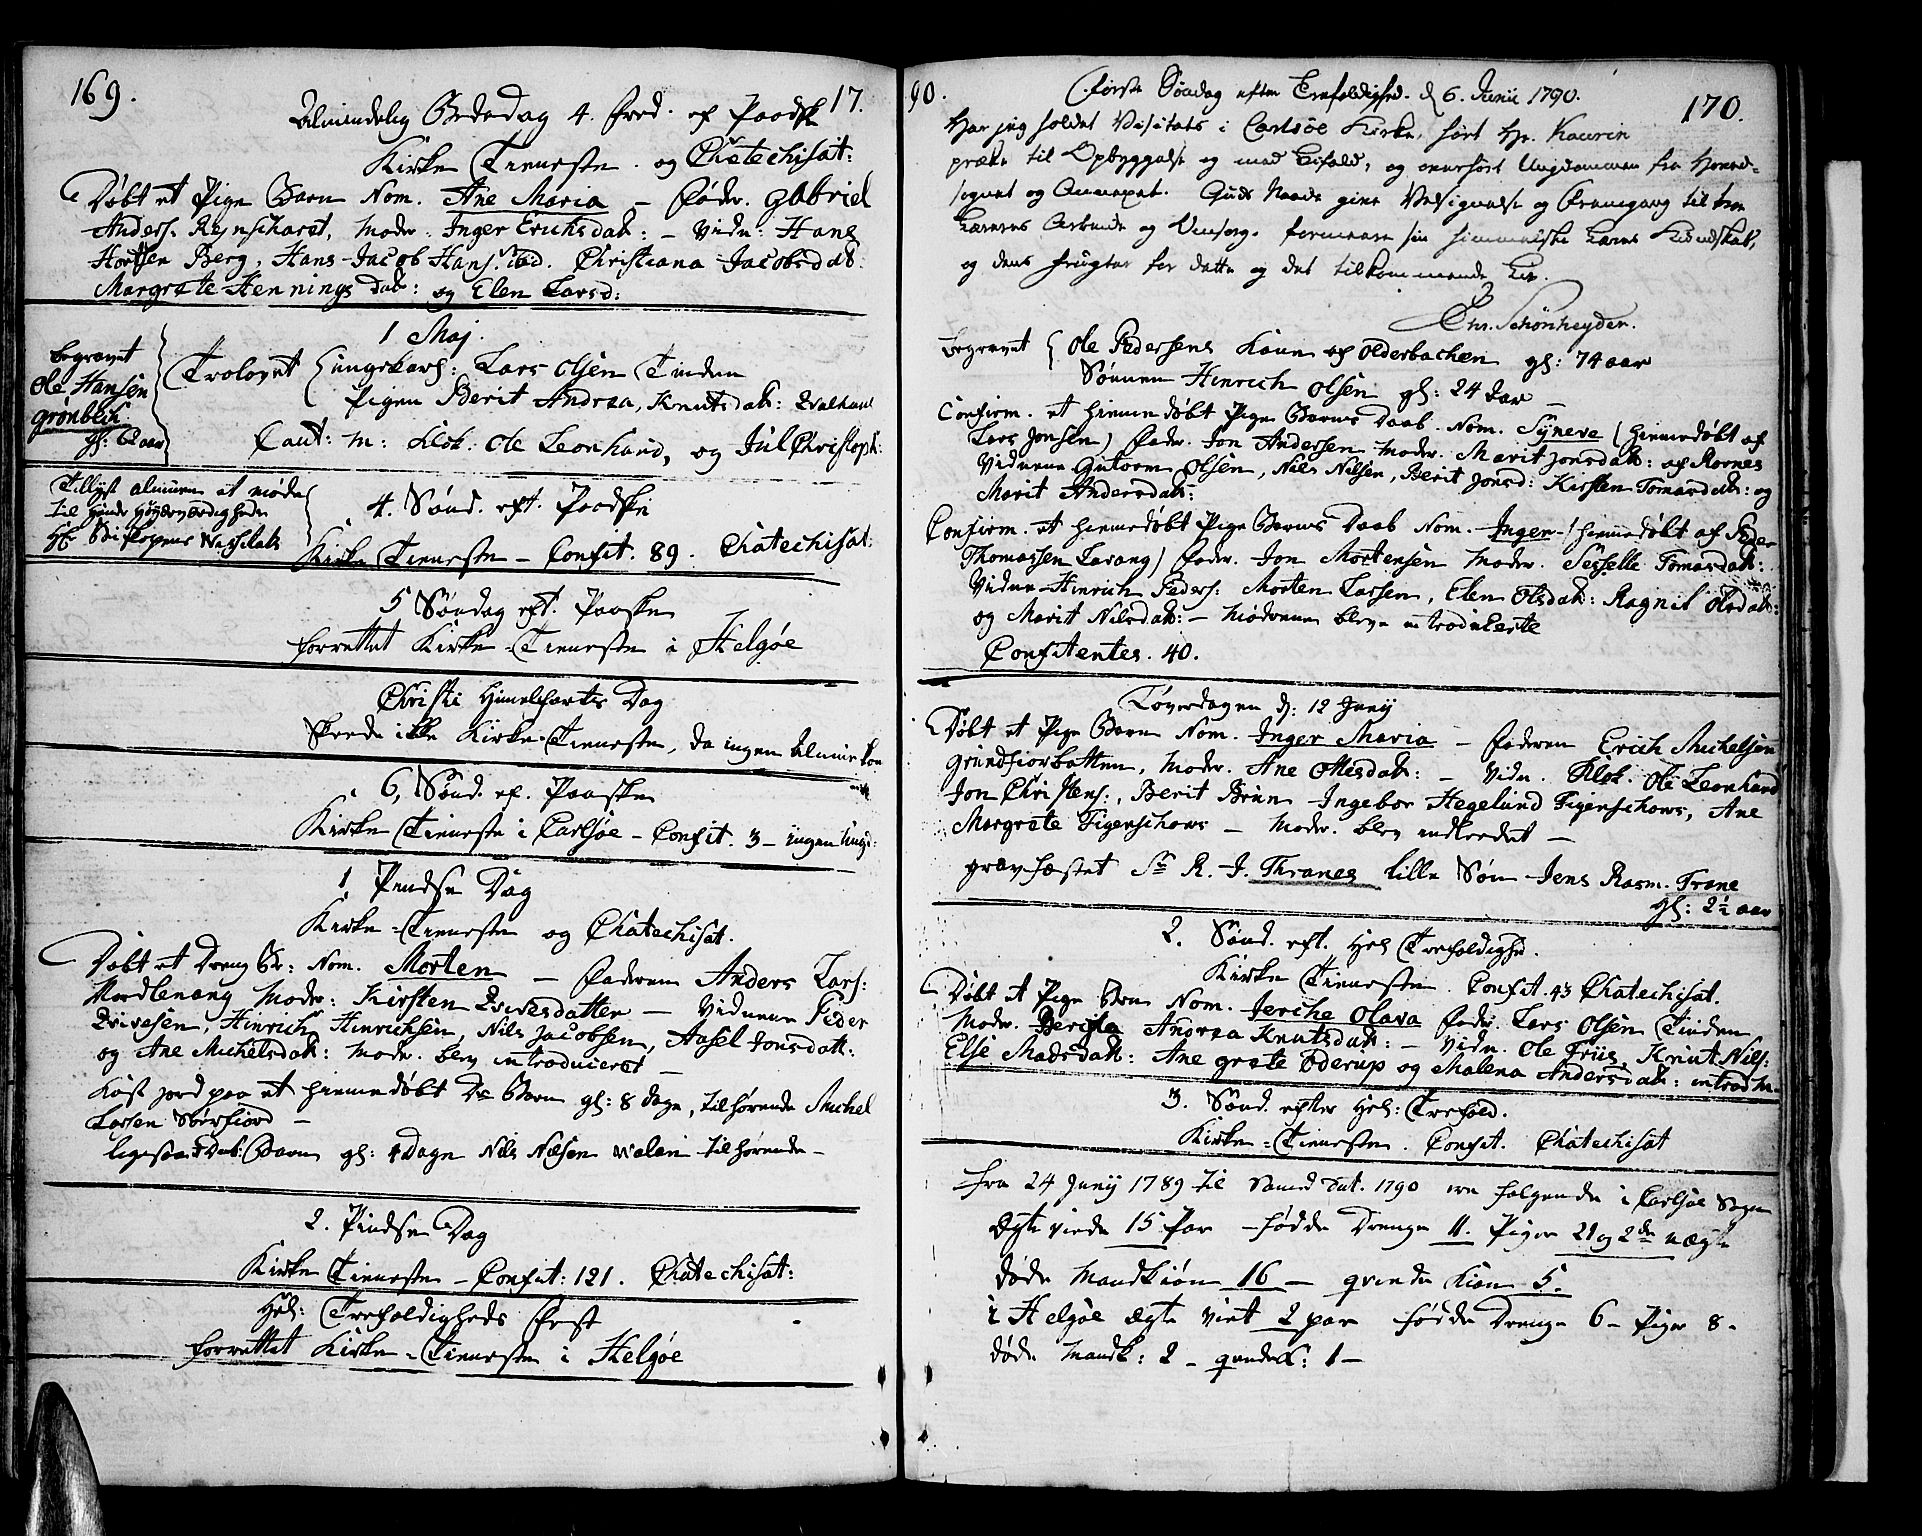 169.
17.
Almindelig Bededag 4. Fred. ef Paaske
Kirke Tieneste og Chatechisat:
Døbt et Pige Barn Nom. Ane Maria - Fader. Gabriel
Anders. Rynschart, Moder. Inger Erichsdat: - Vidn: Hans
Berg, Hans Jacob Hans. ibid. Christiana Jacobsdat:
Margrete Hennings dat: og Elen Larsd:
1 Maj.
begravet
Ole Hansen
grønbech
gl: 62 aar
Trolovet ungekarl: Lars Olsen Tinden
Pigen Berit Andrea Knutsdat: Qvalhaul
Caut: m: Klok. Ole Leonhard, og Jul Christoph:
Tillyst almuen at møde
til
Hr Biskopens
4. Sønd. eft. Paaske
Kirke Tieneste - Confit. 89. Chatechisat:
5 Søndag eft. Paaske
forrettet Kirke-Tieneste i Helgøe
Christi Himelfarts Dag
skeede ikke Kirke-Tieneste, da ingen Almue kom
6, Sønd. ef. Paaske
Kirke Tieneste i Carlsøe - Confit. 3 - ingen ungd:
1. Pindse Dag
Kirke-Tieneste og Chatechisat.
Døbt et Dreng Br: Nom. Morten - Faderen Anders Lars:
Nordlenang Moder: Kirsten Qvivesdatter - Vidnene Peder
Qvivesen, Hinrich Hinrichsen, Nils Jacobsen, Aasel Jonsdat:
og Ane Michelsdat: Moder. blev introduceret -
Kast jord paa et hiemmedøbt Barn gl: 8 dage, tilhørende Michel
Larsen Sørfiord -
ligesaa Barn gl: 4 Dage Nils Nilsen tilhørende -
2. Pindse Dag
Kirke Tieneste - Confit: 121. Chatechisat:
Hel: Trefoldigheds Fest
forrettet Kirke-Tieneste i Helgøe
90.
170.
Første Søndag efter Trefoldighed. d 6. Junii 1790.
Har jeg holdet Visitats i Carlsøe Kirke, hørt Hr. Kaurin
præke til Opbyggelse og med Bifald, og overhørt Ungdommen fra Hoved-
sognet og Annexet. Guds Naade give Velsignelse og Fremgang til
Læreres Arbeide og Omsorg, formeere sin himmelske Læres Kundskab,
og dens frugter for dette og det tilkommende Liv.
Chr. Schønheyder.
begravet Ole Pedersens Kone af Olderbachen gl: 74 aar
Sønnen Hinrich Olsen gl: 24 Aar -
Confirm. et hiemmedøbt Pige Barns Daab. Nom. Syneve (hiemedøbt af
Lars Jonsen) Fader. Jon Andersen Moder. Marit Jonsdat: af Rornes
Vidnene Gutorm Olsen, Nils Nilsen, Berit Jonsd: Kirsten Tomasdat: og
Marit Andersdat:
Confirm. et hiemedøbt Pige Barns Daab Nom. Inger (hiemedøbt af Peder
Thomassen Lavang) Fader. Jon Mortensen Moder. Seselle Tomasdat:
Vidne Hinrich Peders: Morten Larsen, Elen Olsdat: Ragnil Olsdat:
og Marit Nilsdat: - Mødrene bleve introducerte
Confitentes. 40.
Løverdagen d: 12 Junij
Døbt et Pige Barn Nom. Inger Maria - Faderen Erich Michelsen
grundfiorbotten, Moder. Ane Ottisdat: - Vidn. Klok. Ole Leonhard
Jon Christens:, Berit Brun Ingebor Hegelund Figenschows, Ane
Margrete Figenschows - Moder. blev indleedet -
gravfæstet Sr R. J. Thranes lille Søn Jens Rasm. Trane
gl: 2½ aar
2. Sønd. eft. Hel Trefoldighe.
Kirke Tieneste. Confit. 43 Chatechisat.
Døbt et Pige Barn Nom. Jerche Olava Fader. Lars Olsen Tinden
Moder. Andrea Knutsdat: - Vidn. Ole Friis, Knut Nils:
Else Madsdat: Ane grete Oderup og Malena Andersdat:
3. Sønd. efter Hel: Trefold.
Kirke-Tieneste. Confit. Chatechisat
fra 24 Junij 1789 til samme Dat. 1790 ere følgende i Carlsøe Sogn
Ægteviede 15 Par - fødde Drenge 11. Piger 21 og 2de uægte
døde Mandkiøn 16 - qvinde kiøn 5.
i Helgøe Ægte viet 2 par fødde Drenge 6 - Piger 8 -
døde Mandk: 2 - qvindek: 1 -